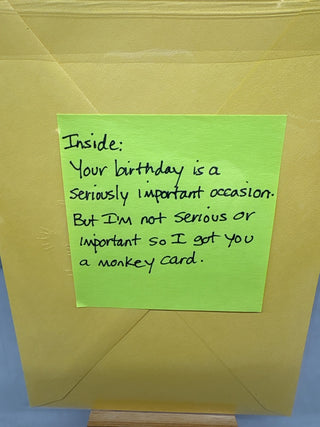 Inside:
Your birthday is a
seriously important occasion.
But I'm not serious or
important so I got you
a monkey card.